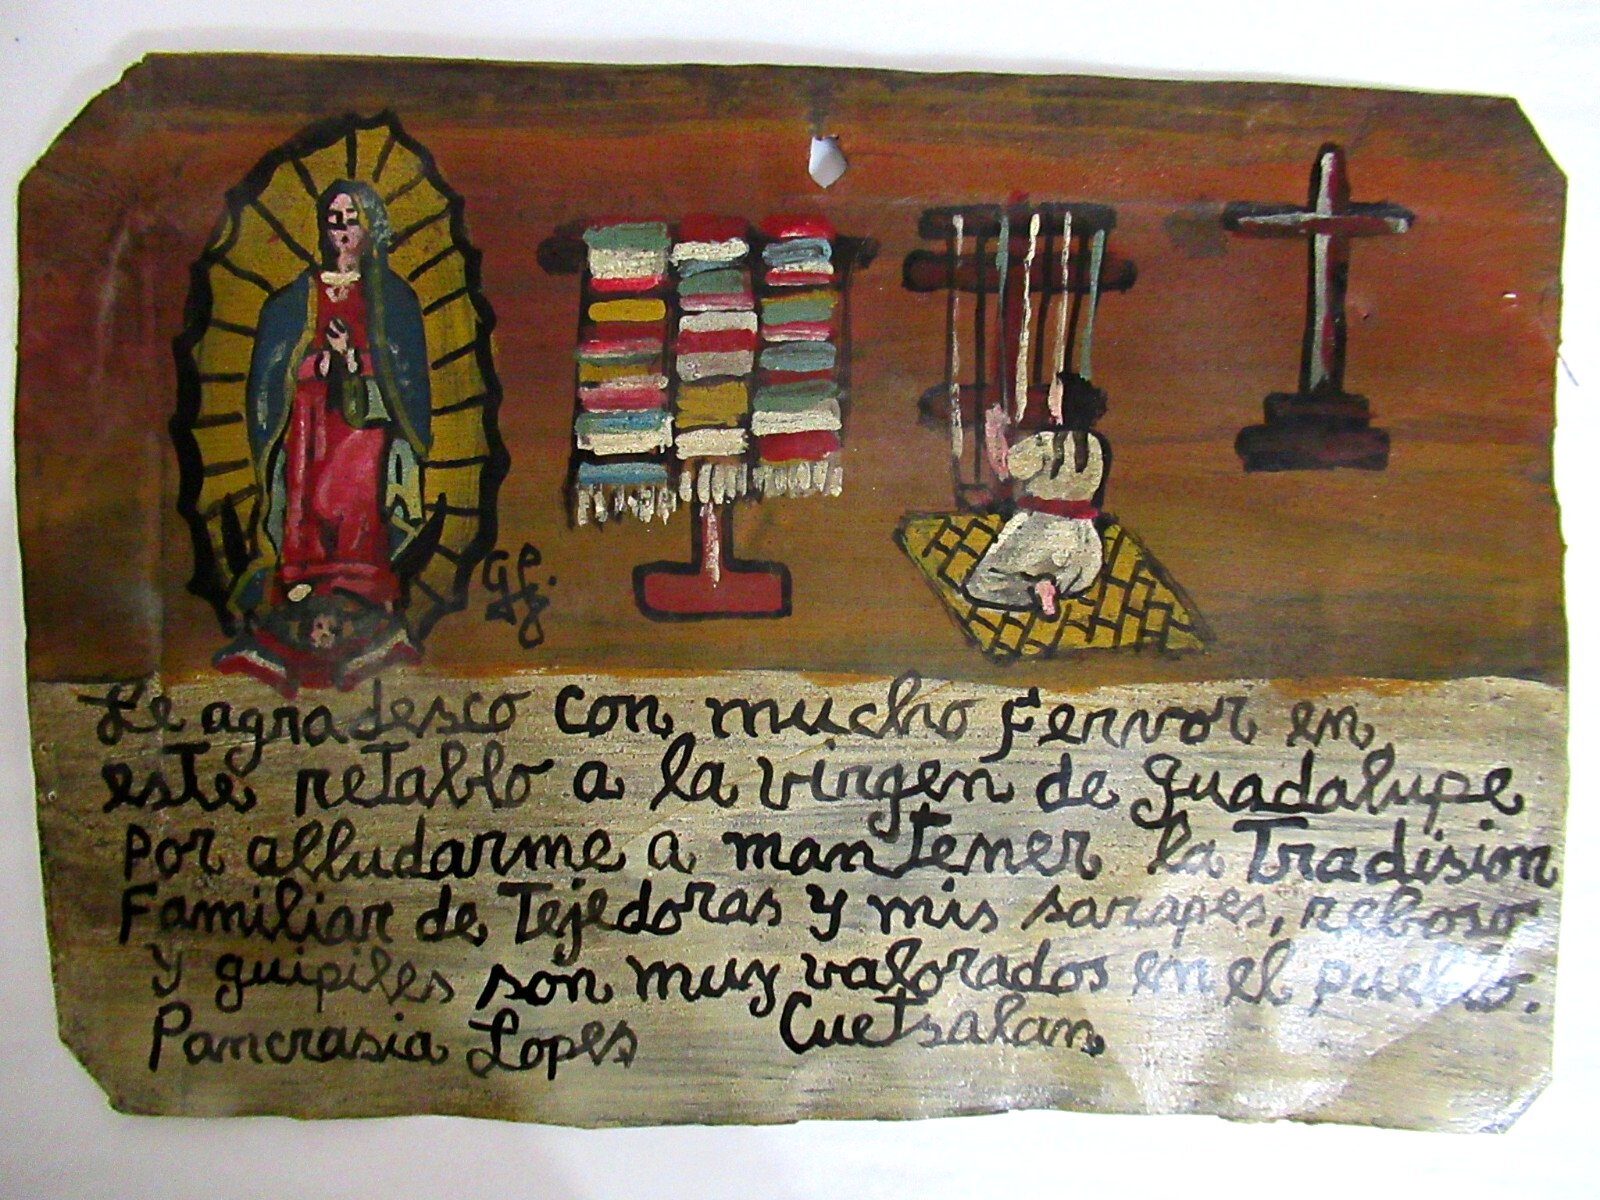 Le agradesco con mucho fervor en
este retablo a la virgen de guadalupe
por alludarme a mantener la Tradision
Familiar de Tejedoras y mis sarapes, reboso
y guipiles son muy valorados en el pueblo.
Pancrasia Lopes Cuetsalan